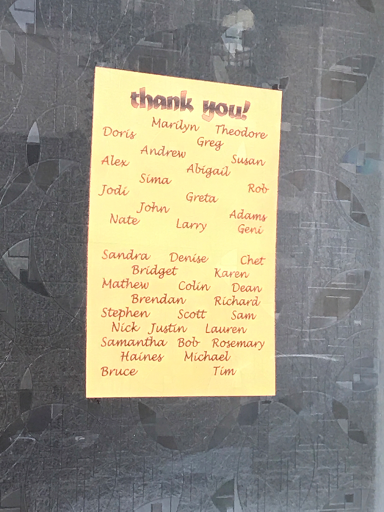 thank you!
Marilyn Theodore
Doris Greg
Andrew Susan
Alex Abigail
Sima Rob
Jodi Greta
John Adams
Nate Larry Geni
Sandra Denise Chet
Bridget Karen
Mathew Colin Dean
Brendan Richard
Stephen Scott Sam
Nick Justin Lauren
Samantha Bob Rosemary
Haines Michael
Bruce Tim